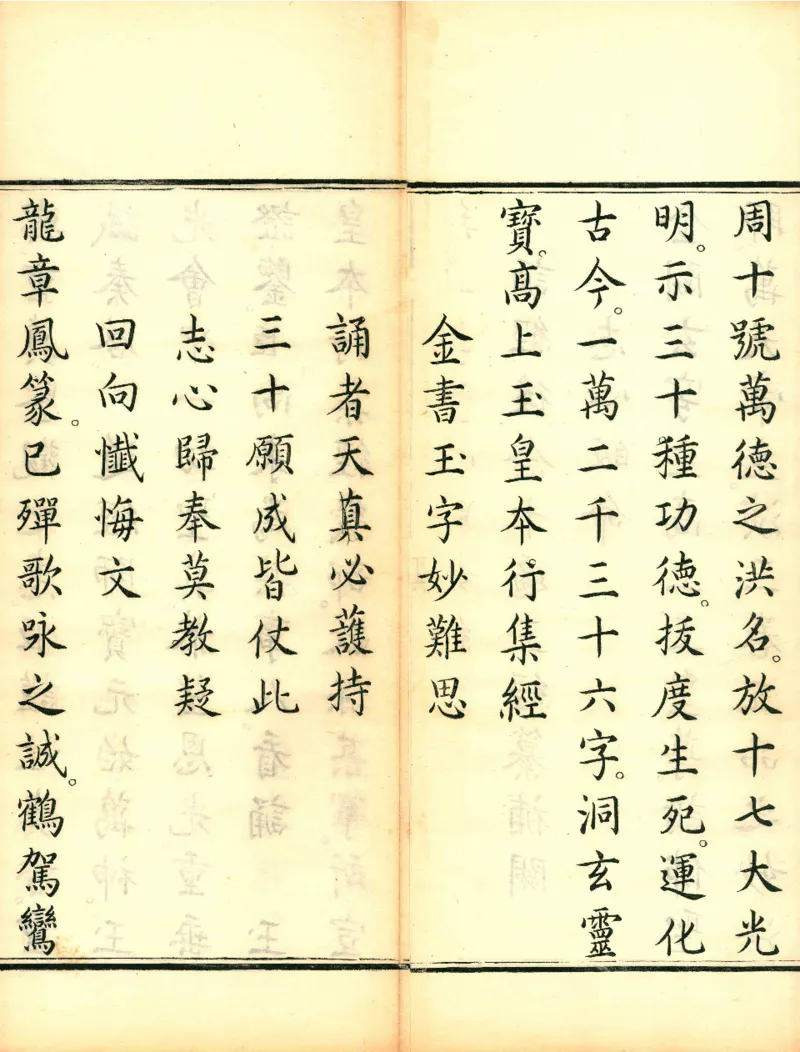 周十號萬德之洪名。放十七大光
明。示三十種功德。拔度生死。運化
古今。一萬二千三十六字。洞玄靈
寶。高上玉皇本行集經
金書玉字妙難思
誦者天真必護持
三十願成皆仗此
志心歸奉莫教疑
回向懺悔文
龍章鳳篆。已殫歌咏之誠。鶴駕鸞